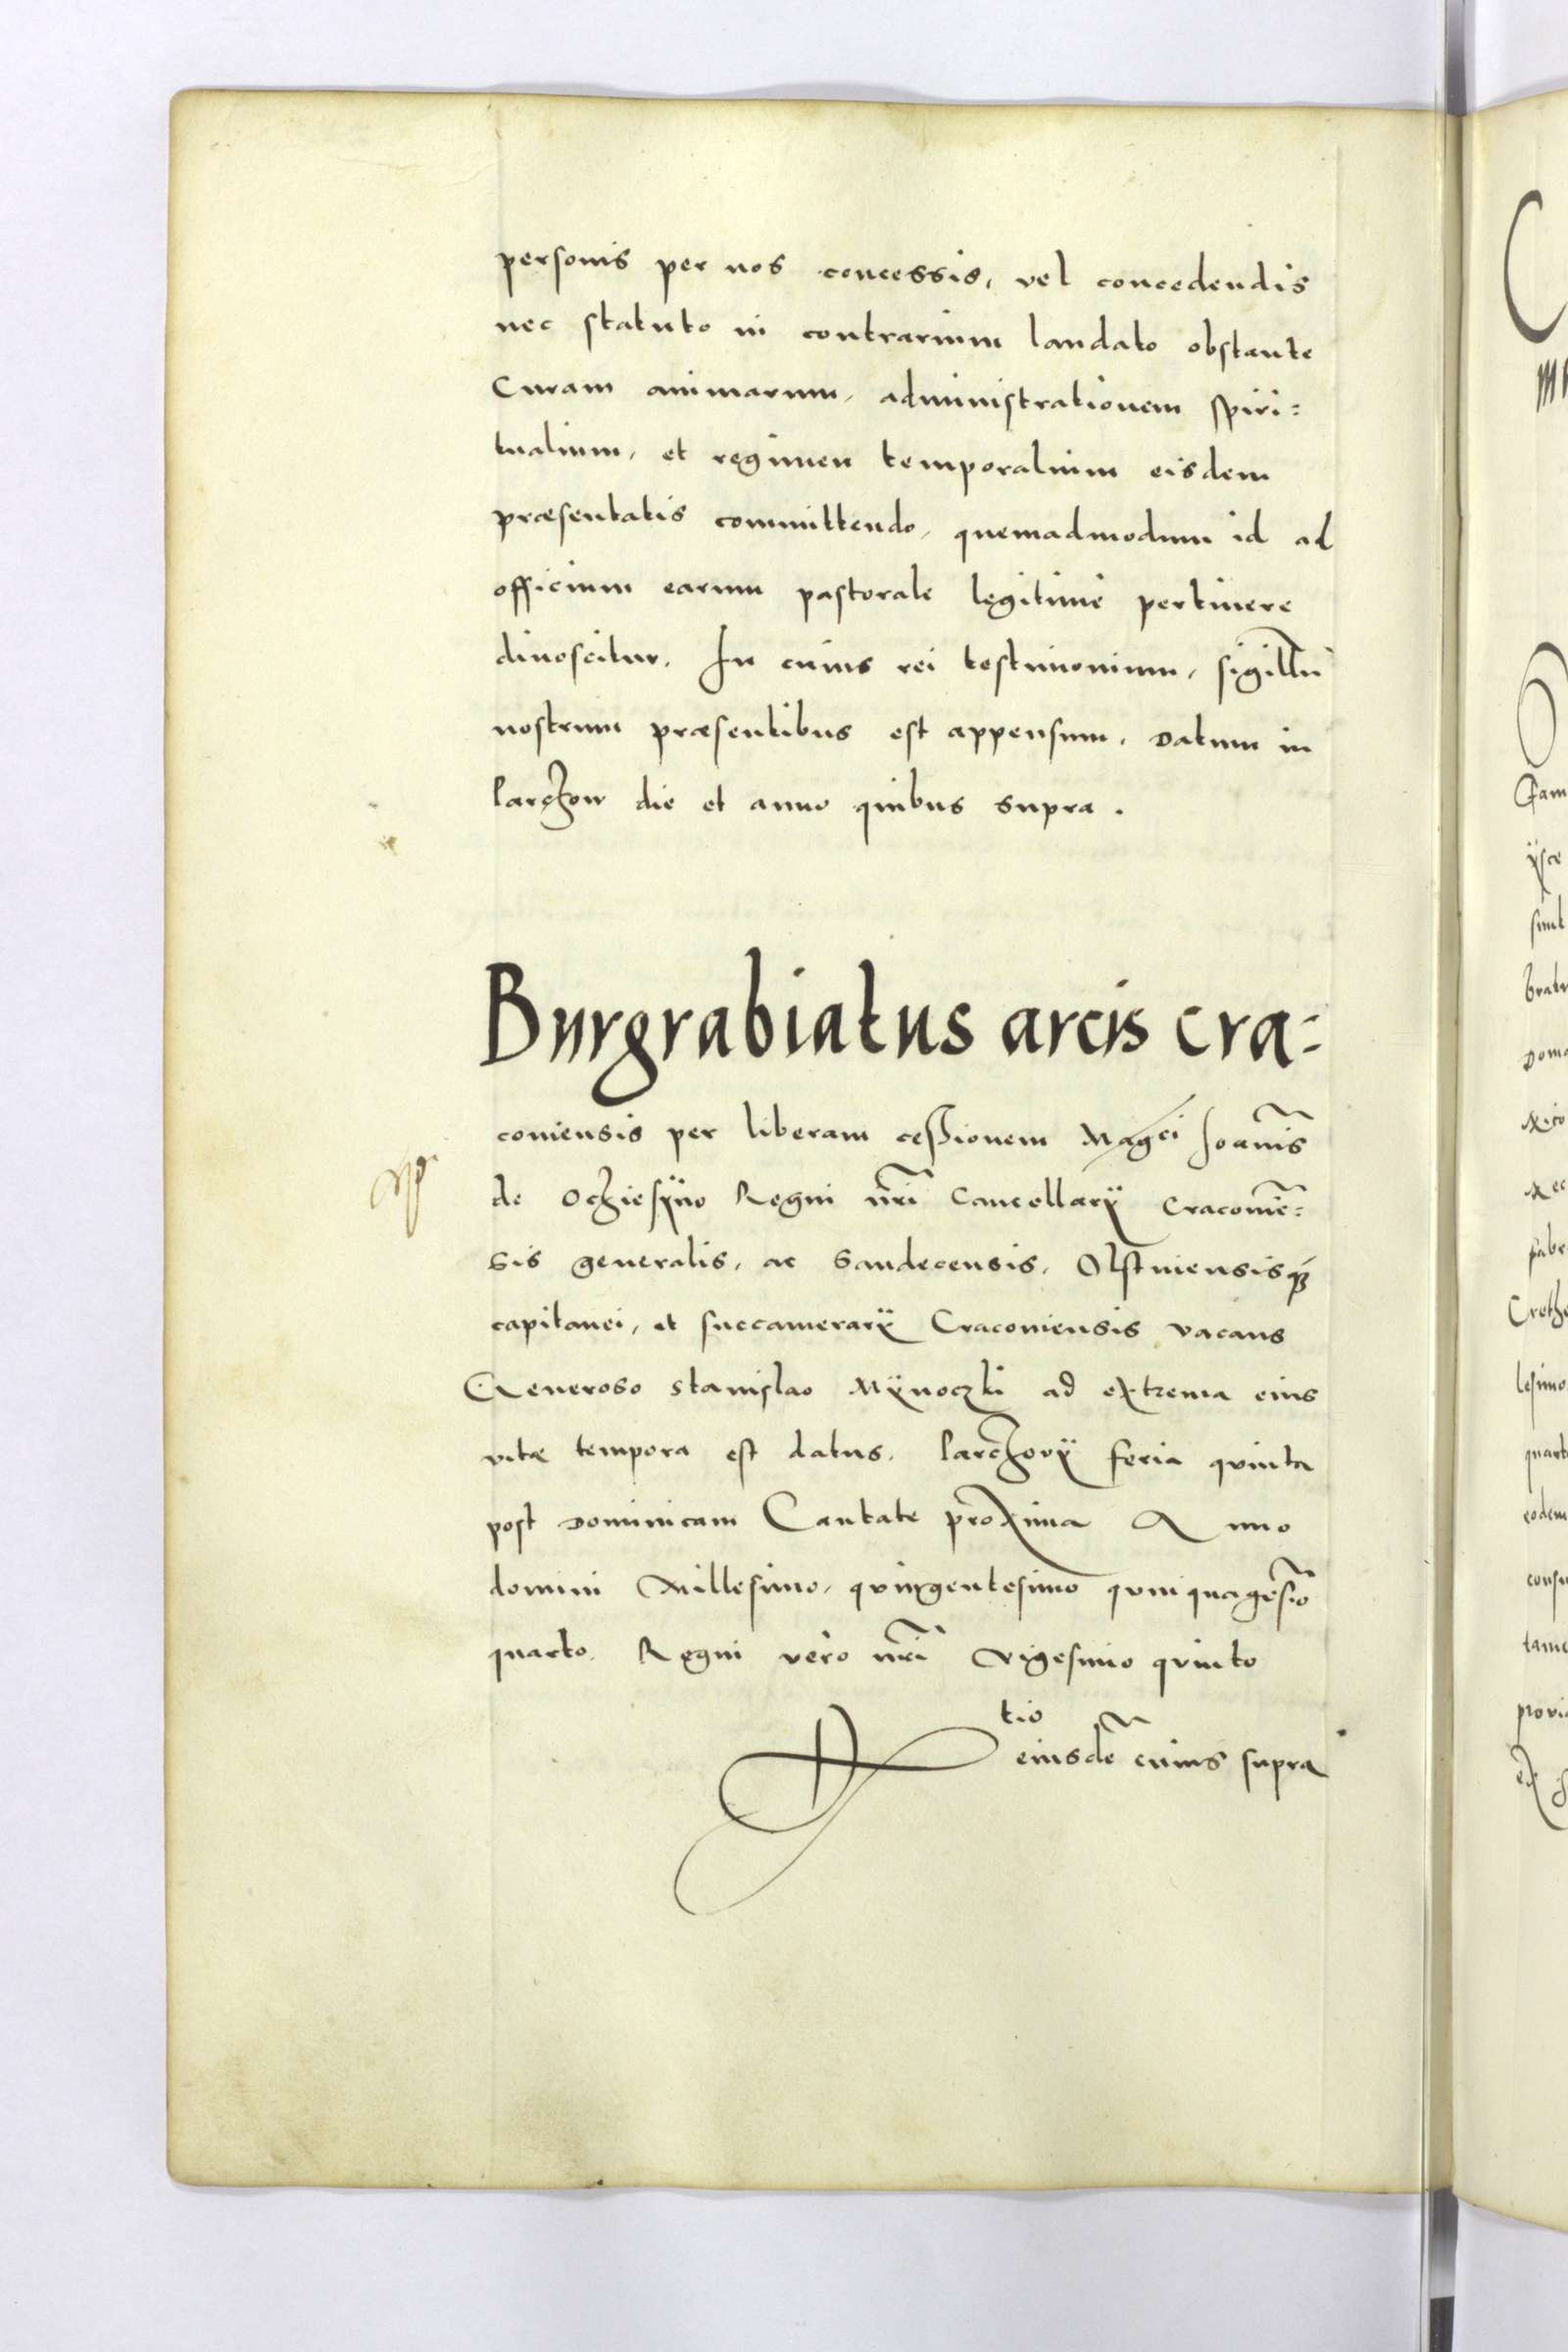 personis per nos concessis, vel concedendis
nec statuto in contrarium laudato obstante
Curam animarum, administrationem spiri=
tualium, et regimen temporalium eisdem
præsentatis committendo, quemadmodum id ad
officium earum pastorale legitime pertinere
dinoscitur. In cuius rei testimonium, sigillũ
nostrum præsentibus est appensum. Datum in
larczow die et anno quibus supra.
Burgrabiatus arcis cra=
coniensis per liberam cessionem Magci Joanĩs
de Oczieſÿno Regni nr̃i Cancellarÿ Craconiẽ=
sis generalis, ac Sandecensis, Olstinensisq̃
capitanei, et succamerarÿ Craconiensis vacans
Generoso Stanislao Mÿnoczki ad extrema eius
vitæ tempora est datus. larczovÿ feria quinta
post Dominicam Cantate proxima Anno
domini Millesimo, quingentesimo quinquagesĩo
quarto. Regni vero nr̃i Vigesimo quinto
tio
eiusdẽ cuius supra
C